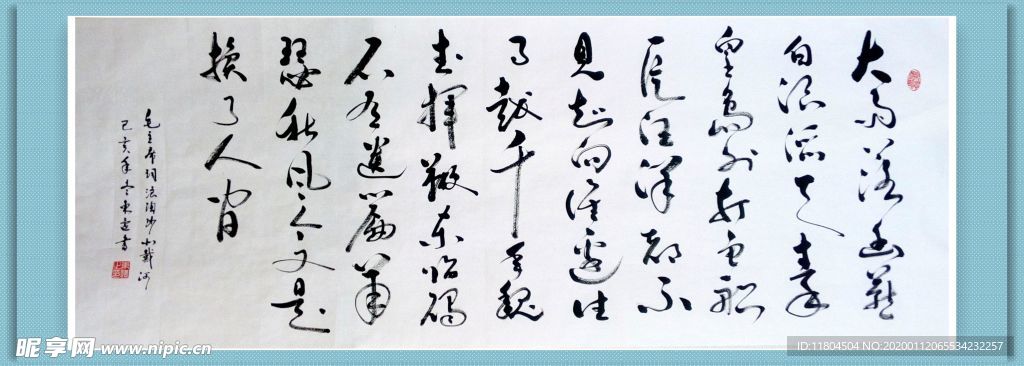 大雨落幽燕
白浪滔天秦
皇岛外打鱼船
一片汪洋都不
见知向谁边往
事越千年魏
武挥鞭东临碣
石有遗篇萧
瑟秋风今又是
换了人间
毛主席词浪淘沙北戴河
己亥年冬 书
昵享网 www.nipic.cn
ID:11804504 NO:20200112065534232257